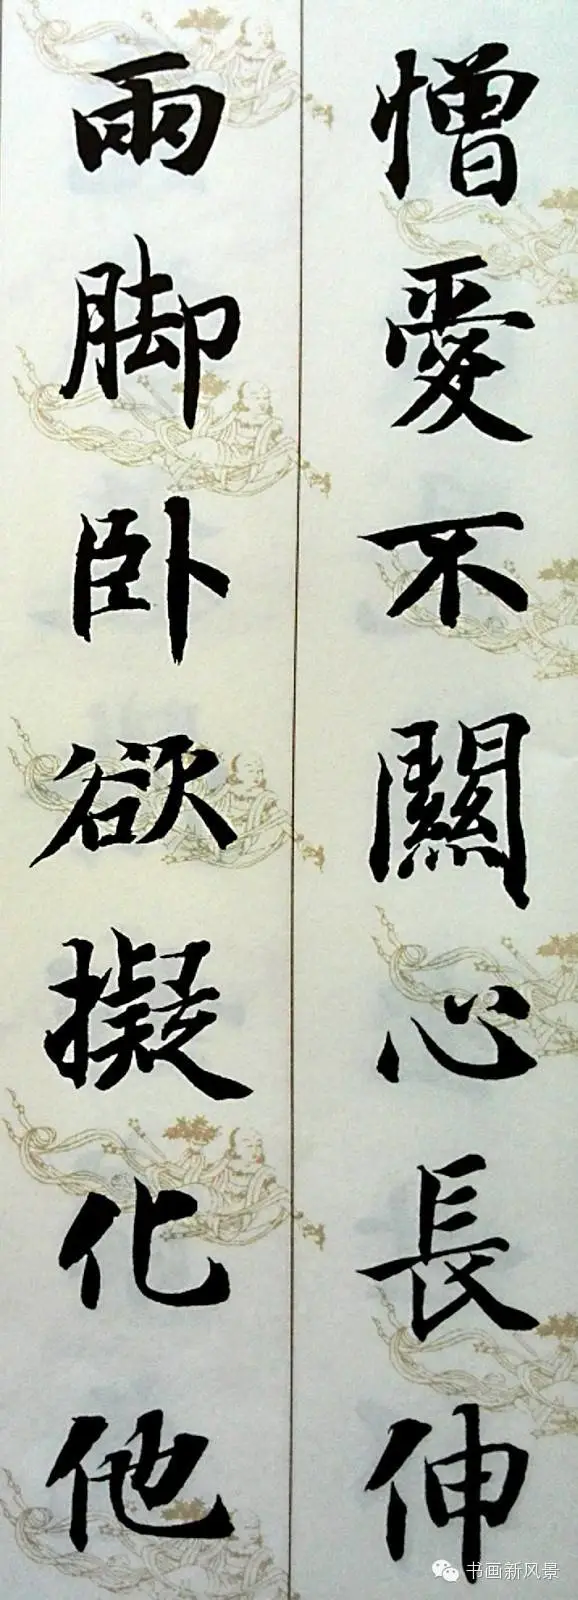 憎愛不關心長伸
兩脚卧欲擬化他
书画新风景